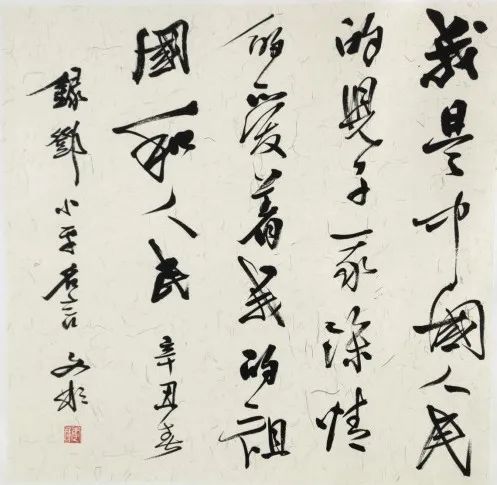 我是中國人民
的兒子我深情
的愛着我的祖
國和人民 辛丑春
錄鄧小平名言